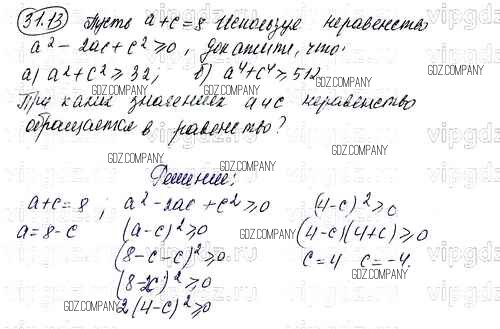 31.13 Пусть a + c = 8 Используя неравенство
a² - 2ac + c² ≥ 0, докажите, что:
а) a² + c² ≥ 32; б) a⁴ + c⁴ ≥ 512
При каких значениях a и c неравенство
обращается в равенство?
Решение:
a + c = 8 ; a² - 2ac + c² ≥ 0 (4 - c)² ≥ 0
a = 8 - c (a - c)² ≥ 0 (4 - c)(4 + c) ≥ 0
(8 - c - c)² ≥ 0 c = 4 c = -4.
(8 - 2c)² ≥ 0
2(4 - c)² ≥ 0
GDZ.COMPANY
GDZ.COMPANY
GDZ.COMPANY
GDZ.COMPANY
GDZ.COMPANY
GDZ.COMPANY
GDZ.COMPANY
GDZ.COMPANY
GDZ.COMPANY
GDZ.COMPANY